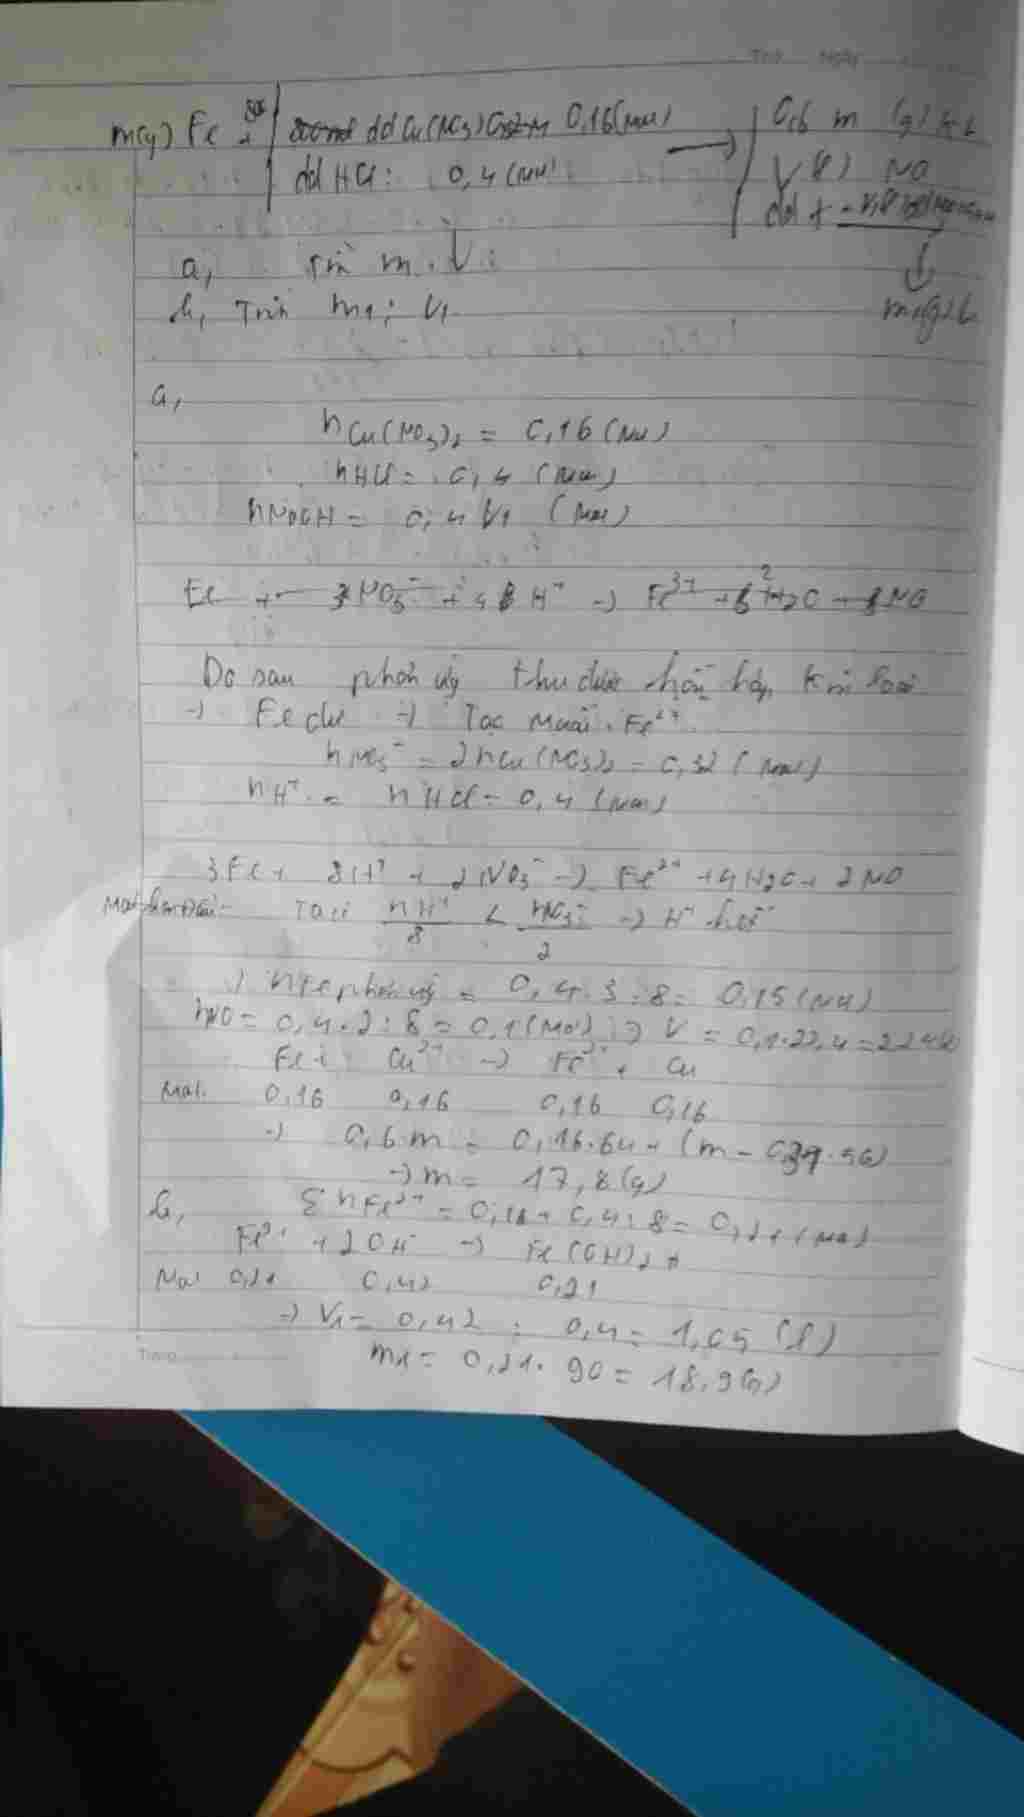 Thứ Ngày
m(g) Fe + dd Cu(NO3) 0,16(mol) → 0,6 m (g) KL
dd HCl: 0,4 (mol) V (l) NO
dd +
a, Tìm m, V:
b, Tính m1; V1 m1(g)↓
a,
nCu(NO3)2 = 0,16 (mol)
nHCl = 0,4 (mol)
nNaOH = 0,4 V1 (mol)
Fe + NO3⁻ + 4 H⁺ → Fe³⁺ + 2 H2O + NO
Do sau phản ứng thu được hỗn hợp kim loại
→ Fe dư → Tạo muối Fe²⁺
nNO3⁻ = 2nCu(NO3)2 = 0,32 (mol)
nH⁺ = nHCl = 0,4 (mol)
3Fe + 8H⁺ + 2NO3⁻ → Fe²⁺ + 4H2O + 2NO
Ta có nH⁺/8 < nNO3⁻/2 → H⁺ hết
→ nFe phản ứng = 0,4.3:8 = 0,15 (mol)
nNO = 0,4.2:8 = 0,1 (mol) → V = 0,1.22,4 = 2,24(l)
Fe + Cu²⁺ → Fe²⁺ + Cu
Mol: 0,16 0,16 0,16 0,16
→ 0,6.m = 0,16.64 + (m - 0,31.56)
→ m = 17,8(g)
b, Σ nFe²⁺ = 0,16 + 0,4:8 = 0,21 (mol)
Fe²⁺ + 2OH⁻ → Fe(OH)2 ↓
Mol 0,21 0,42 0,21
→ V1 = 0,42 : 0,4 = 1,05 (l)
m1 = 0,21.90 = 18,9(g)